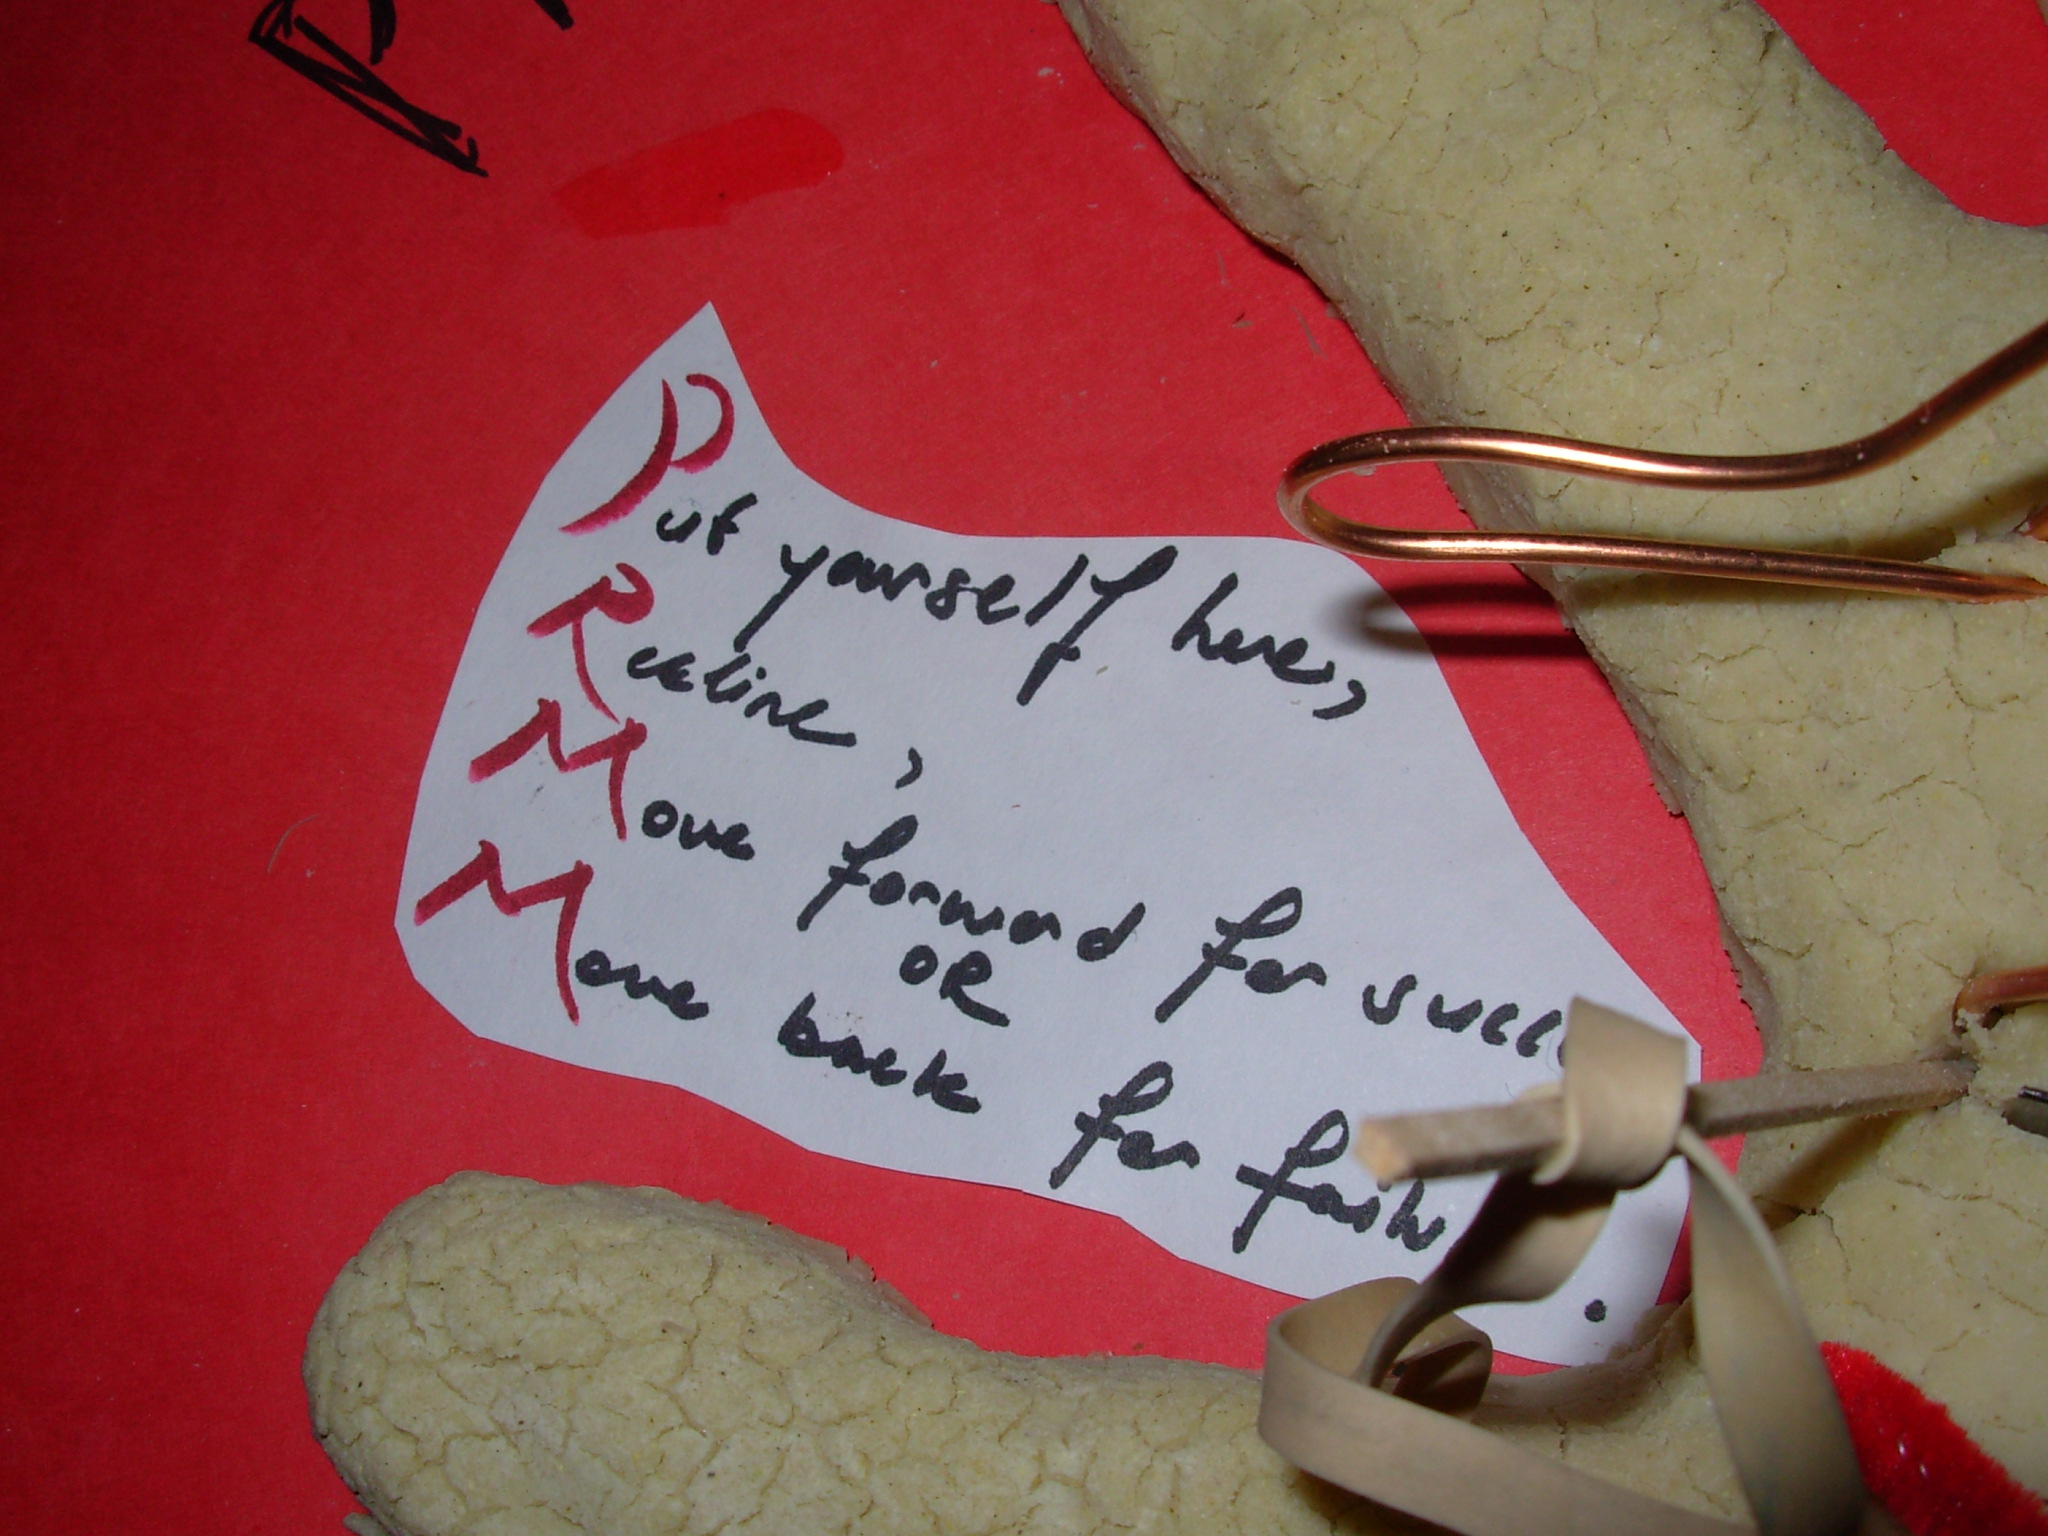 Put yourself here,
Recline,
Move forward for
OR
Move back for